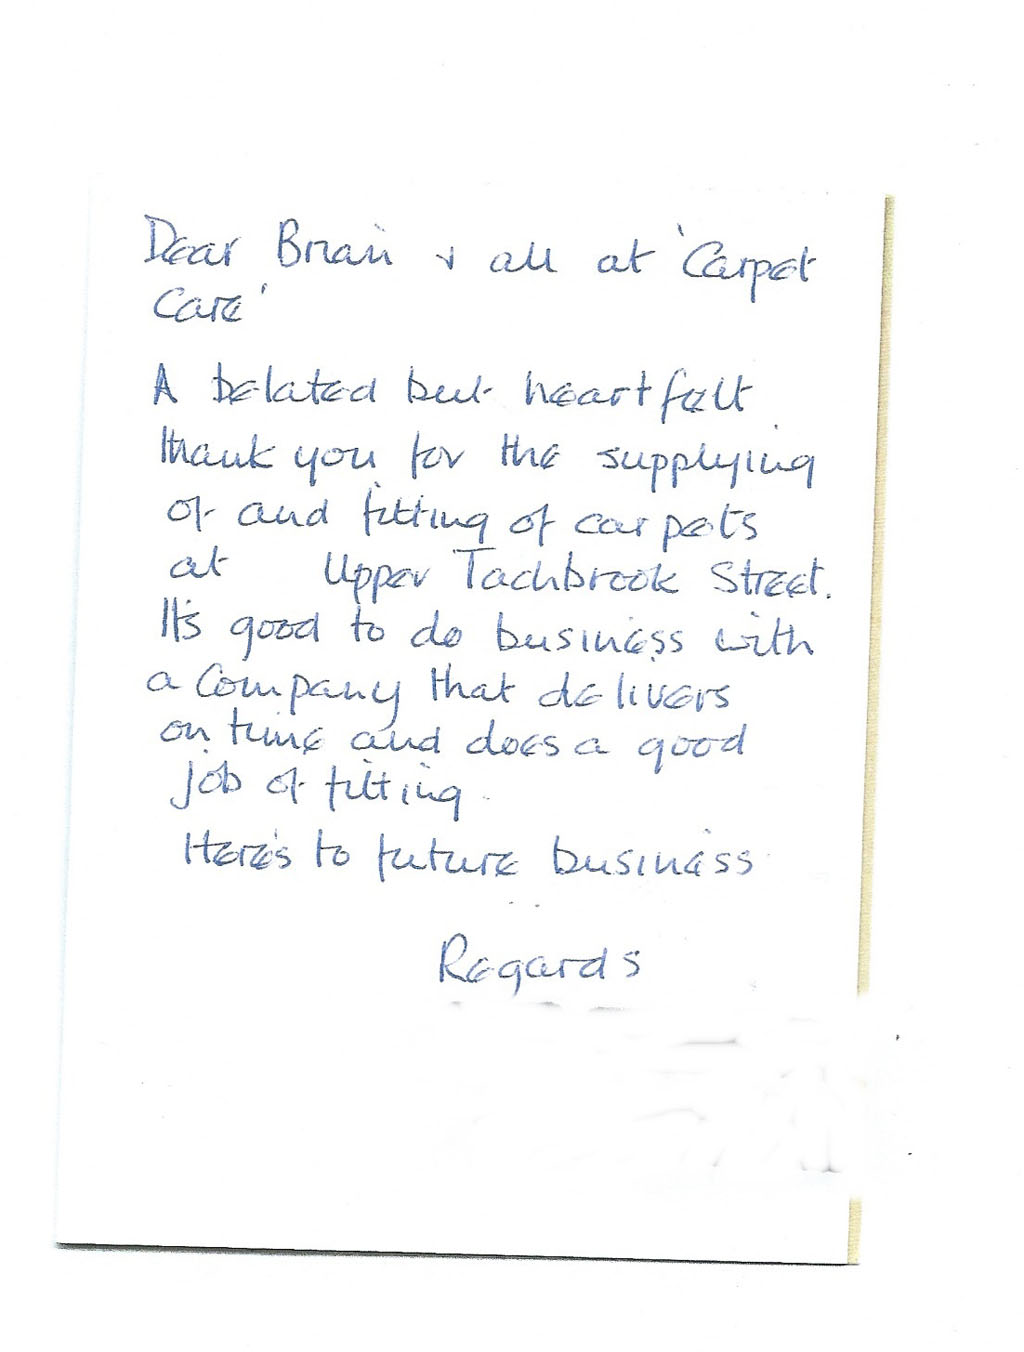 Dear Brian & all at 'Carpet
Care'
A belated but heartfelt
thank you for the supplying
of and fitting of carpets
at Upper Tachbrook Street.
It's good to do business with
a Company that delivers
on time and does a good
job of fitting.
Here's to future business
Regards